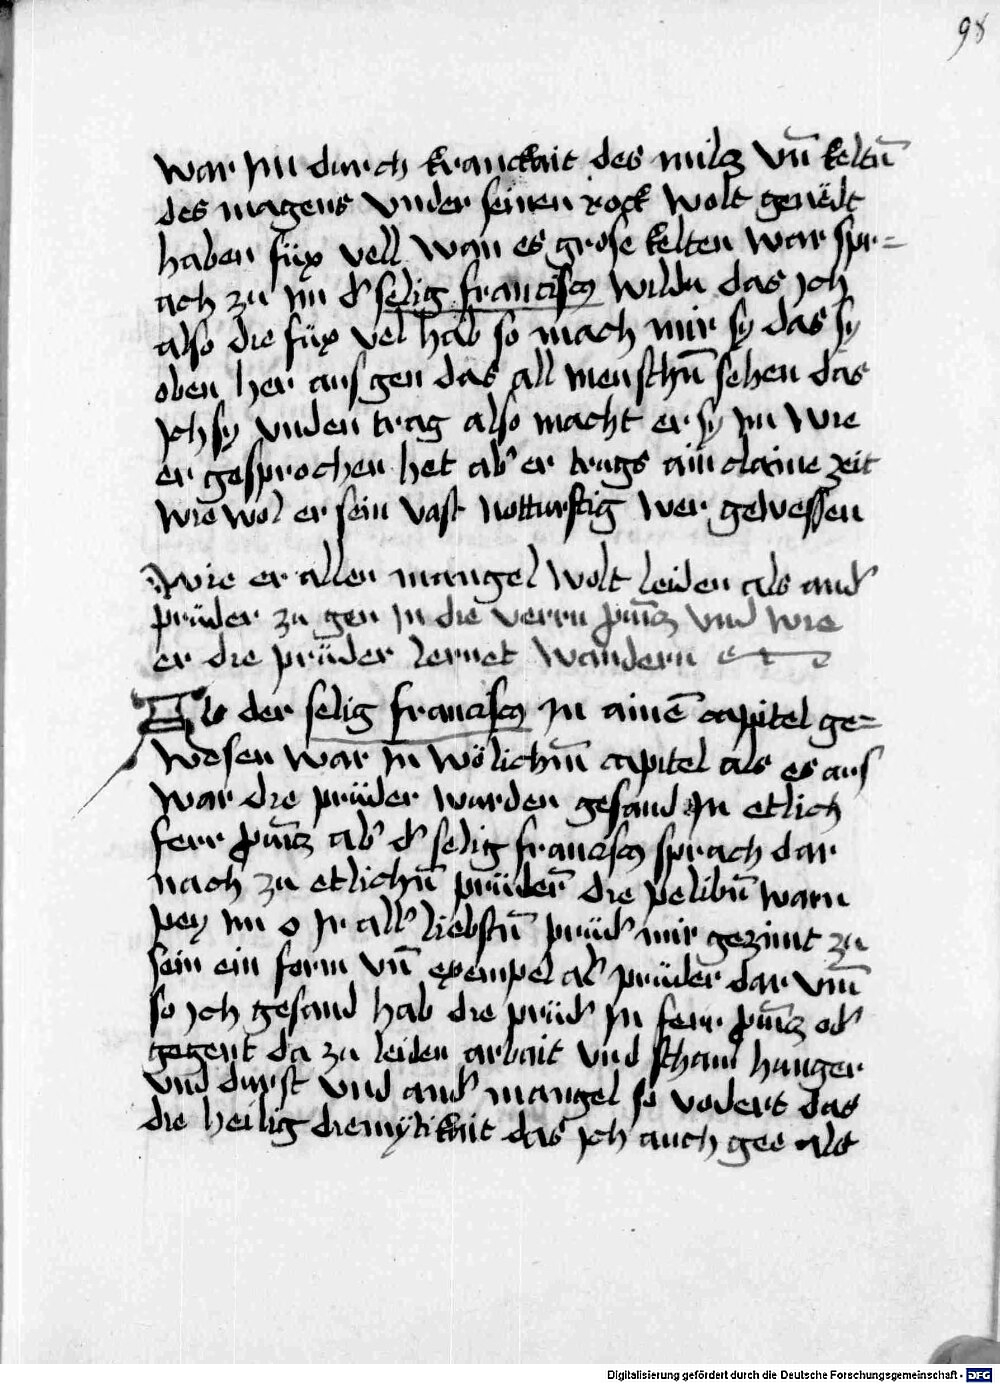 98
war im durch kranckait des milcz vn̄ keltn̄
des magens vnder seinen rock wolt genedt
haben füx vell wan es grose kelten war spr=
ach zu im d' selig franciscꝰ wildu das ich
also die füx vel hab so mach mir sy das sy
oben her aus gen das all menschn̄ sehen das
ich sy vnden trag also macht er sy im wie
er gesprochen het ab' er trugs ain claine zeit
wie wol er sein vast notturftig wer gewessen
Wie er allen mangel wolt leiden als and'
prüder zu gen in die verrn ꝓuīcz vnd wie
er die prüder lernet wandern
Do der selig franciscꝰ in ainē capitel ge=
wesen war in wölichm̄ capitel als es aus
war die prüder wurden gesand in etlich
ferr ꝓuīcz ab' d' selig franciscꝰ sprach dar
nach zu etlichn̄ prüdern̄ die pelibn̄ warn
pey im o ir all' liebstn̄ prüd' mir gezimt zu
sein ein form vn̄ exempel al' prüder dar vm̄
so ich gesand hab die prüd' in ferr ꝓuīcz od'
gegent da zu leiden arbait vnd scham hunger
vnd durst vnd and' mangel so vodert das
die heilig diemytikait das ich auch gee als
Digitalisierung gefördert durch die Deutsche Forschungsgemeinschaft - DFG